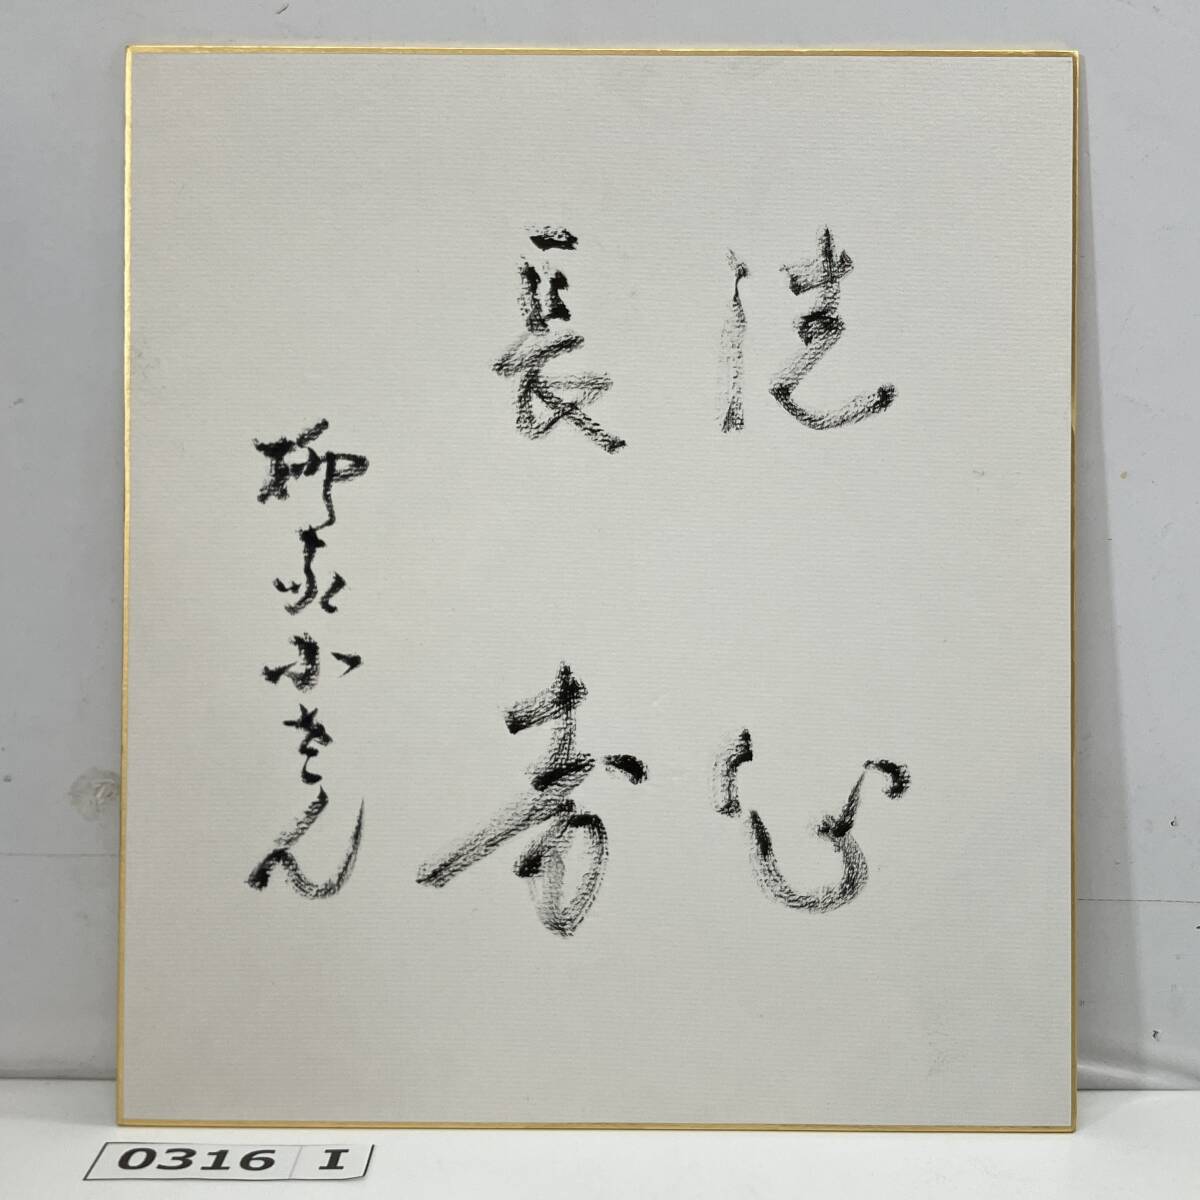 洗心
長寿
柳家小さん
0316 I